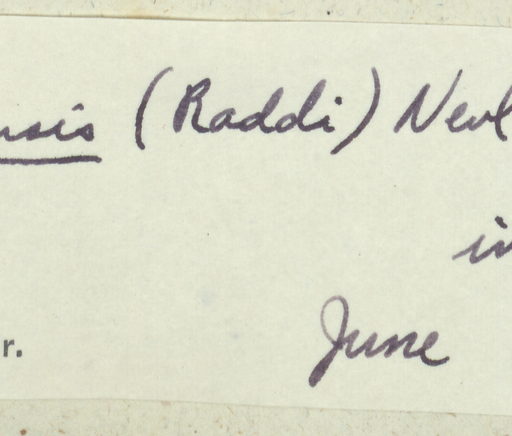 nsis (Raddi) Nevl
in
June
r.